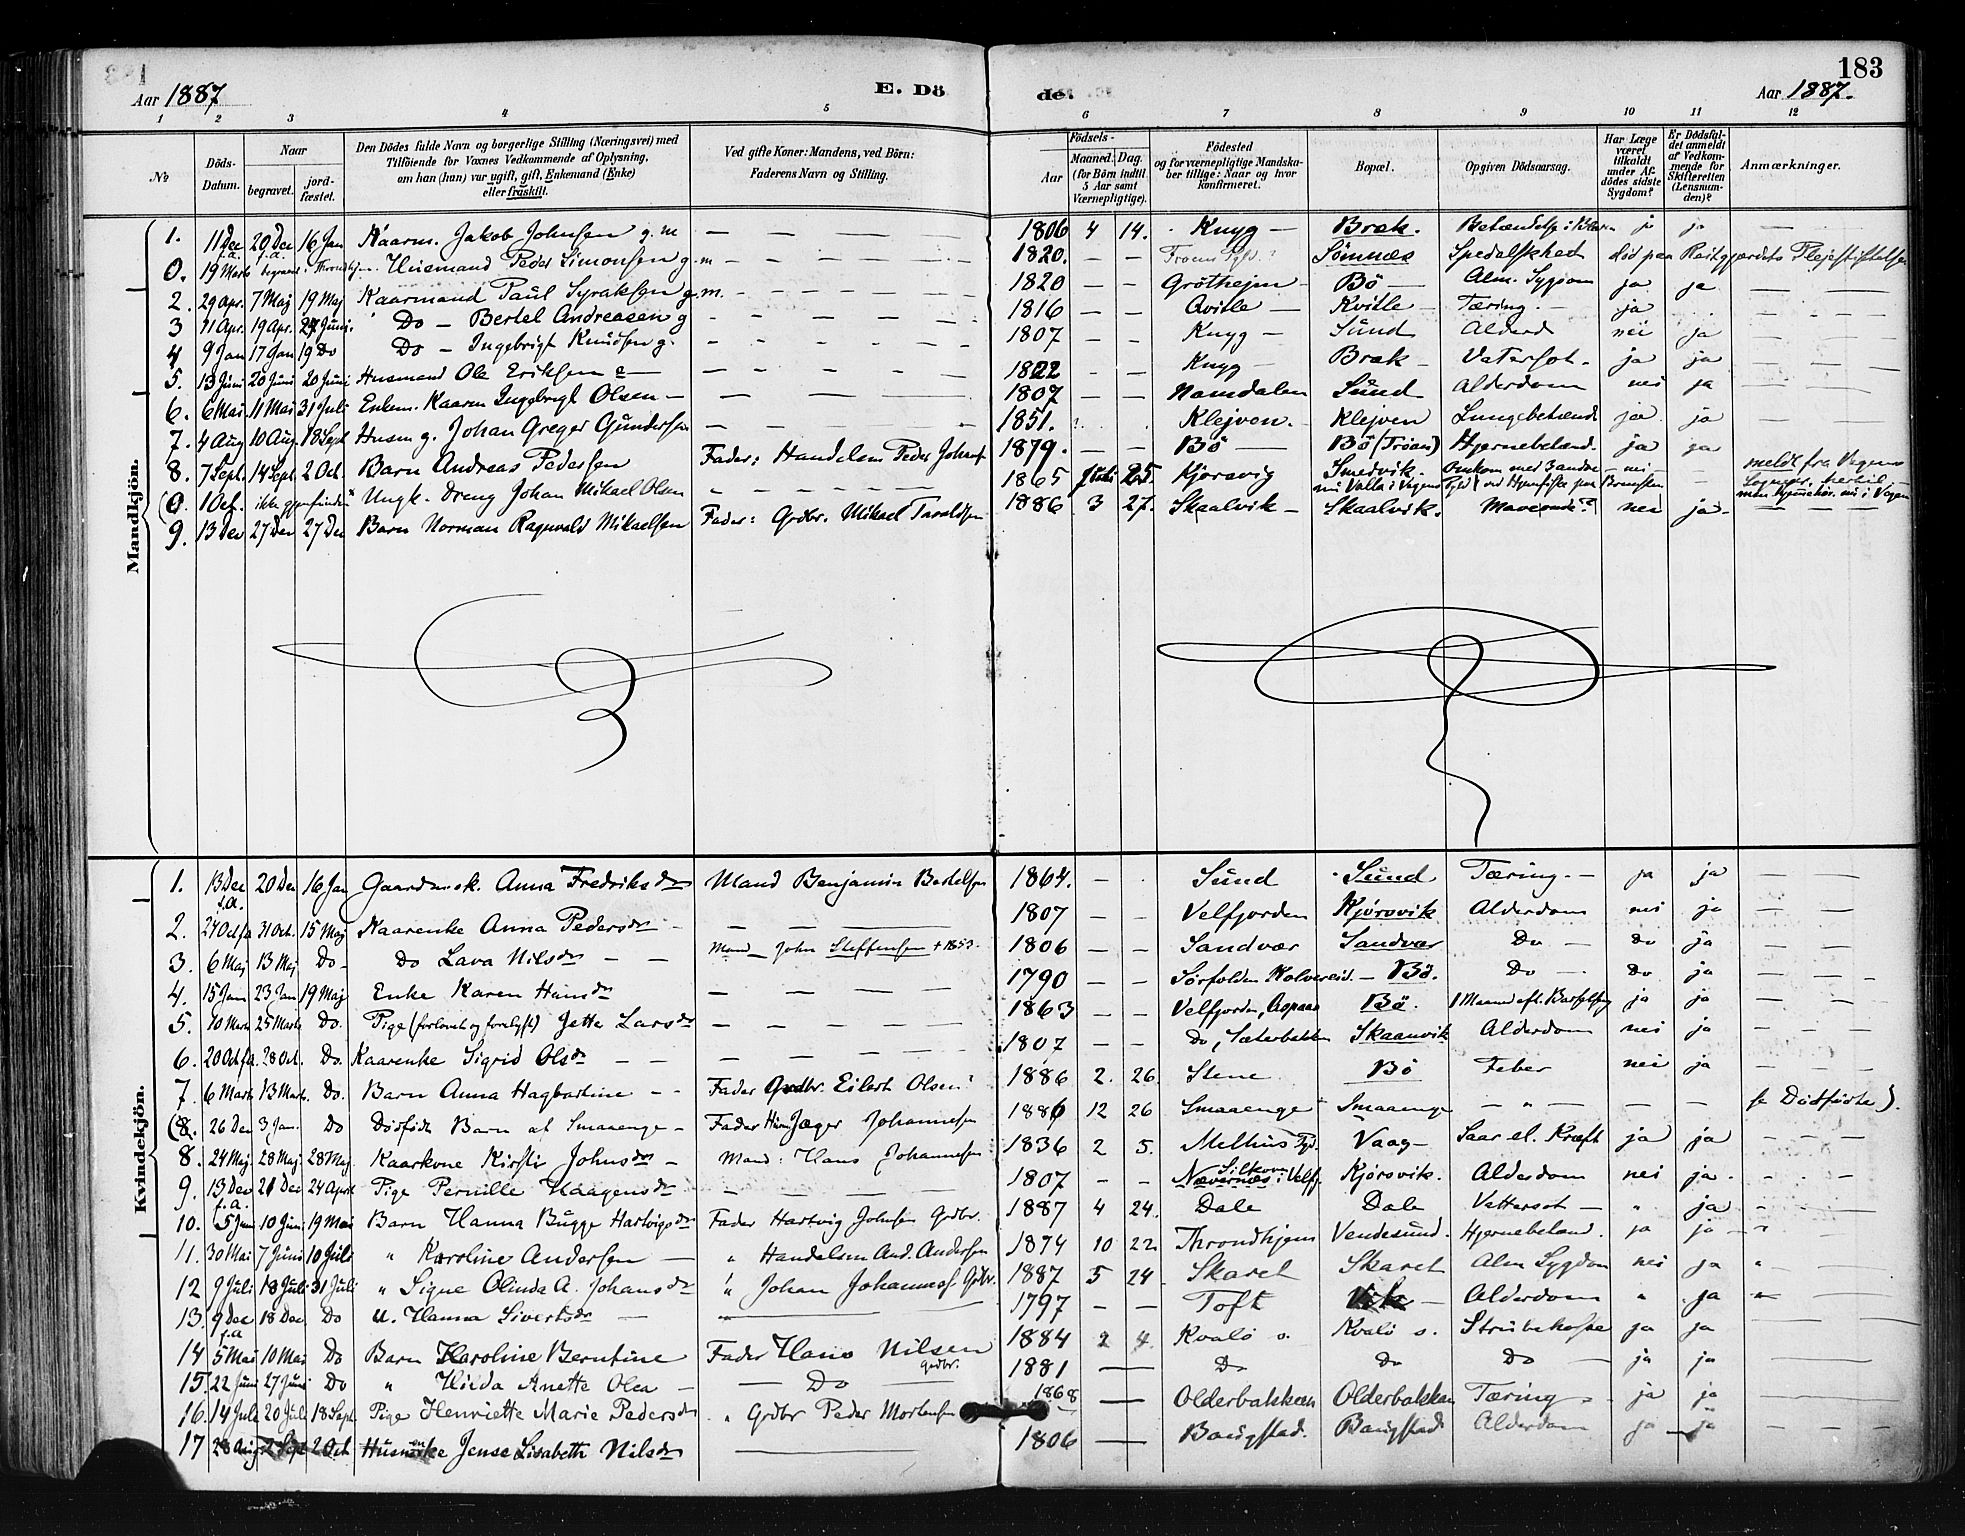 183
Aar 1887 E. Dö de. Aar 1887.
1 2 3 4 5 6 7 8 9 10 11 12
№ Döds-Datum. Naar begravet. jordfæstet. Den Dödes fulde Navn og borgerlige Stilling (Næringsvei) med Tilföiende for Voxnes Vedkommende af Oplysning, om han (hun) var ugift, gift, Enkemand (Enke) eller fraskilt. Ved gifte Koner: Mandens, ved Börn: Faderens Navn og Stilling. Födsels- Aar Maaned. Dag. (for Börn indtil 5 Aar samt Værnepligtige). Födested og for værnepligtige Mandskaber tillige: Naar og hvor konfirmeret. Bopæl. Opgiven Dödsaarsag. Har Læge været tilkaldt under Afdödes sidste Sygdom? Er Dödsfaldet anmeldt af Vedkommende for Skifteretten (Lensmanden)? Anmærkninger.
Mandkjön.
1. 11 Dec f.a. 20 Dec f.a. 16 Jan Kaarm. Jakob Johnsen g.m — — — — 1806 4 14. Knyg — Bræk. Betændelse i ja ja —
0. 19 Marts begravet i Throndhjem. Peder Simonsen g.m — — — — 1820. — — Sömnæs Spedalskhed död paa Reitgjærdets Plejestiftelse
2. 29 Apr. 7 Maj 19 Maj Kaarmand Paul Syraksen g.m. — — — — 1820 — — Gröthejen — Bö — Alm. Sygdom ja ja — —
3 11 Apr. 19 Apr. 24 Juni. Do — Bertel Andreasen g — — — — 1816 — — Qvitle — Kvitle — Tæring. — ja — —
4 9 Jan 17 Jan 19 Do Do — Ingebrigt Knudsen g. — — — — 1807 — — Knyg — Sund Alderd nei ja — —
5. 13 Juni 20 Juni 20 Juni Husmand Ole Eriksen e — — — — 1822 — — Knyg — Bræk — Vatersot. ja ja — —
6. 6 Mai 11 Mai 31 Juli Enkem. Kaarm Ingebrigt Olsen — — — — 1807 — — Namdalen Sund Alderdom nei ja — —
7. 4 Aug 10 Aug. 18 Sept Husm g. Johan Greger Gundersen — — — — 1851. Klejven. — Klejven Lungebetænd ja ja — —
8. 7 Sept. 14 Sept. 2 Oct. Barn Andreas Pedersen Fader: Handelsm Peder Johns 1879. — — Bö — Bö (Tröan) Hjernebetænd. ja ja — —
(0. 1 Oct. ikke gjenfunden Ungk. Dreng Johan Mikael Olsen — — — — 1865 Juli 25. Kjørsvig Smedvik. nu Valla i Vegens Pgld Omkom med 3 andre — nei — meldt fra Vegens
9. 13 Dec 27 Dec 27 Dec Barn Norman Ragnvald Mikaelsen Fader: Grdbr. Mikael Taraldsen 1886 3 27. Skaalvik — Skaalvik. Maveonde? nei ja — — —
Kvindekjön.
1. 13 Dec f.a. 20 Dec 16 Jan Gaardmsk. Anna Fredriksdr Mand Benjamin Bertelsen 1864. — . Sund Sund Tæring. — ja ja — —
2. 24 Oct fa 31 Oct. 15 Maj Kaarenke Anna Pedersdr — — — — 1807 — — Velfjorden Kjörsvik Alderdom nei ja — —
3. 6 Maj 13 Maj Do — Do Lava Nilsdr — — Mand — John Steffensen + 1853. 1806 — — Sandvær Sandvær Do — Do ja — —
4. 15 Jan 23 Jan 19 Maj Enke Karen Hansdr — — — — 1790 — — Sörfolden Kolvereid. — Bö. Do — Do ja — — —
5. 10 Marts 25 Marts Do. Pige (forlovet og forelyst) Jette Larsdr — — — — 1863 — — Velfjorden, Aspaas Bö. 1 Maaned eft. Barselseng ja ja — —
6. 20 Oct fa. 28 Oct. Do. Kaarenke Sigrid Olsdr — — — — — — 1807 — — Do, Sæterbakken Skaanvik Alderdom nei ja — —
7. 6 Marts 13 Marts. Do. Barn Anna Hagbartine — — Fader Grdbr. Eilert Olsen 1886 2. 26. Stene Bö Feber nei ja — —
(8. 26 Dec 3 Jan. Do Dödfödt Barn af Smaaenge — Fader Husm Jæger Johannesen 1886 12 26 Smaaenge Smaaenge — " — — — se Dödfödte).
8. 24 Maj 28 Maj 28 Maj Kaarkone Kirsti Johnsdr — Mand: Hans Johannesen 1836 2 5. Melhus Pgd Vaag — Saar el. Kræft ja ja — — —
9. 13 Dec f.a. 21 Dec 24 April Pige Pernille Haagensdr — — — — 1807 — — Nævernæs i Velfj. Kjörsvik. Alderdom nei ja. — — —
10. 5 Juni 10 Juni 19 Mai Barn Hanna Bugge Hartvigsdr Fader Hartvig Johnsen Grdbr. 1887 4 24. Dale Dale Vattersot — " ja — —
11. 30 Mai 7 Juni 10 Juli " Karoline Andersen — " Handelsm And. Andersen 1874 10 22 Throndhjem Vendesund. Hjernebetænd. ja ja — "
12 9 Juli 18 Juli 31 Juli " Signe Olinda A. Johansdr " Johan Johannes Grdbr. 1887 5 24 Skaret Skaret Alm Sygdom nei ja " —
13. 9 Dec f.a 18 Dec Do u. Hanna Sivertsdr — — 1797 — — Toft Vik — Alderdom " ja — —
14 5 Mai 10 Mai Do Barn Karoline Berntine Fader Hans Nilsen Grdbr. 1884 2 4. Kvalö s. Kvalö s. Strubehoste ja ja — —
15. 22 Juni 27 Juni Do " Hilda Anette Olea — — Do — 1881 — Do Do Do — ja ja — —
16. 14 Juli 20 Juli 18 Sept. Pige Henriette Marie Pedersdr " Grdbr Peder Mortensen 1868 — Olderbakken Olderbakken Tæring — ja ja — —
17 28 Aug 2 Sept 2 Oct Husmenke Jense Lisabeth Nilsdr — 1806 — Baugstad. Baugstad Alderdom ja ja — — —